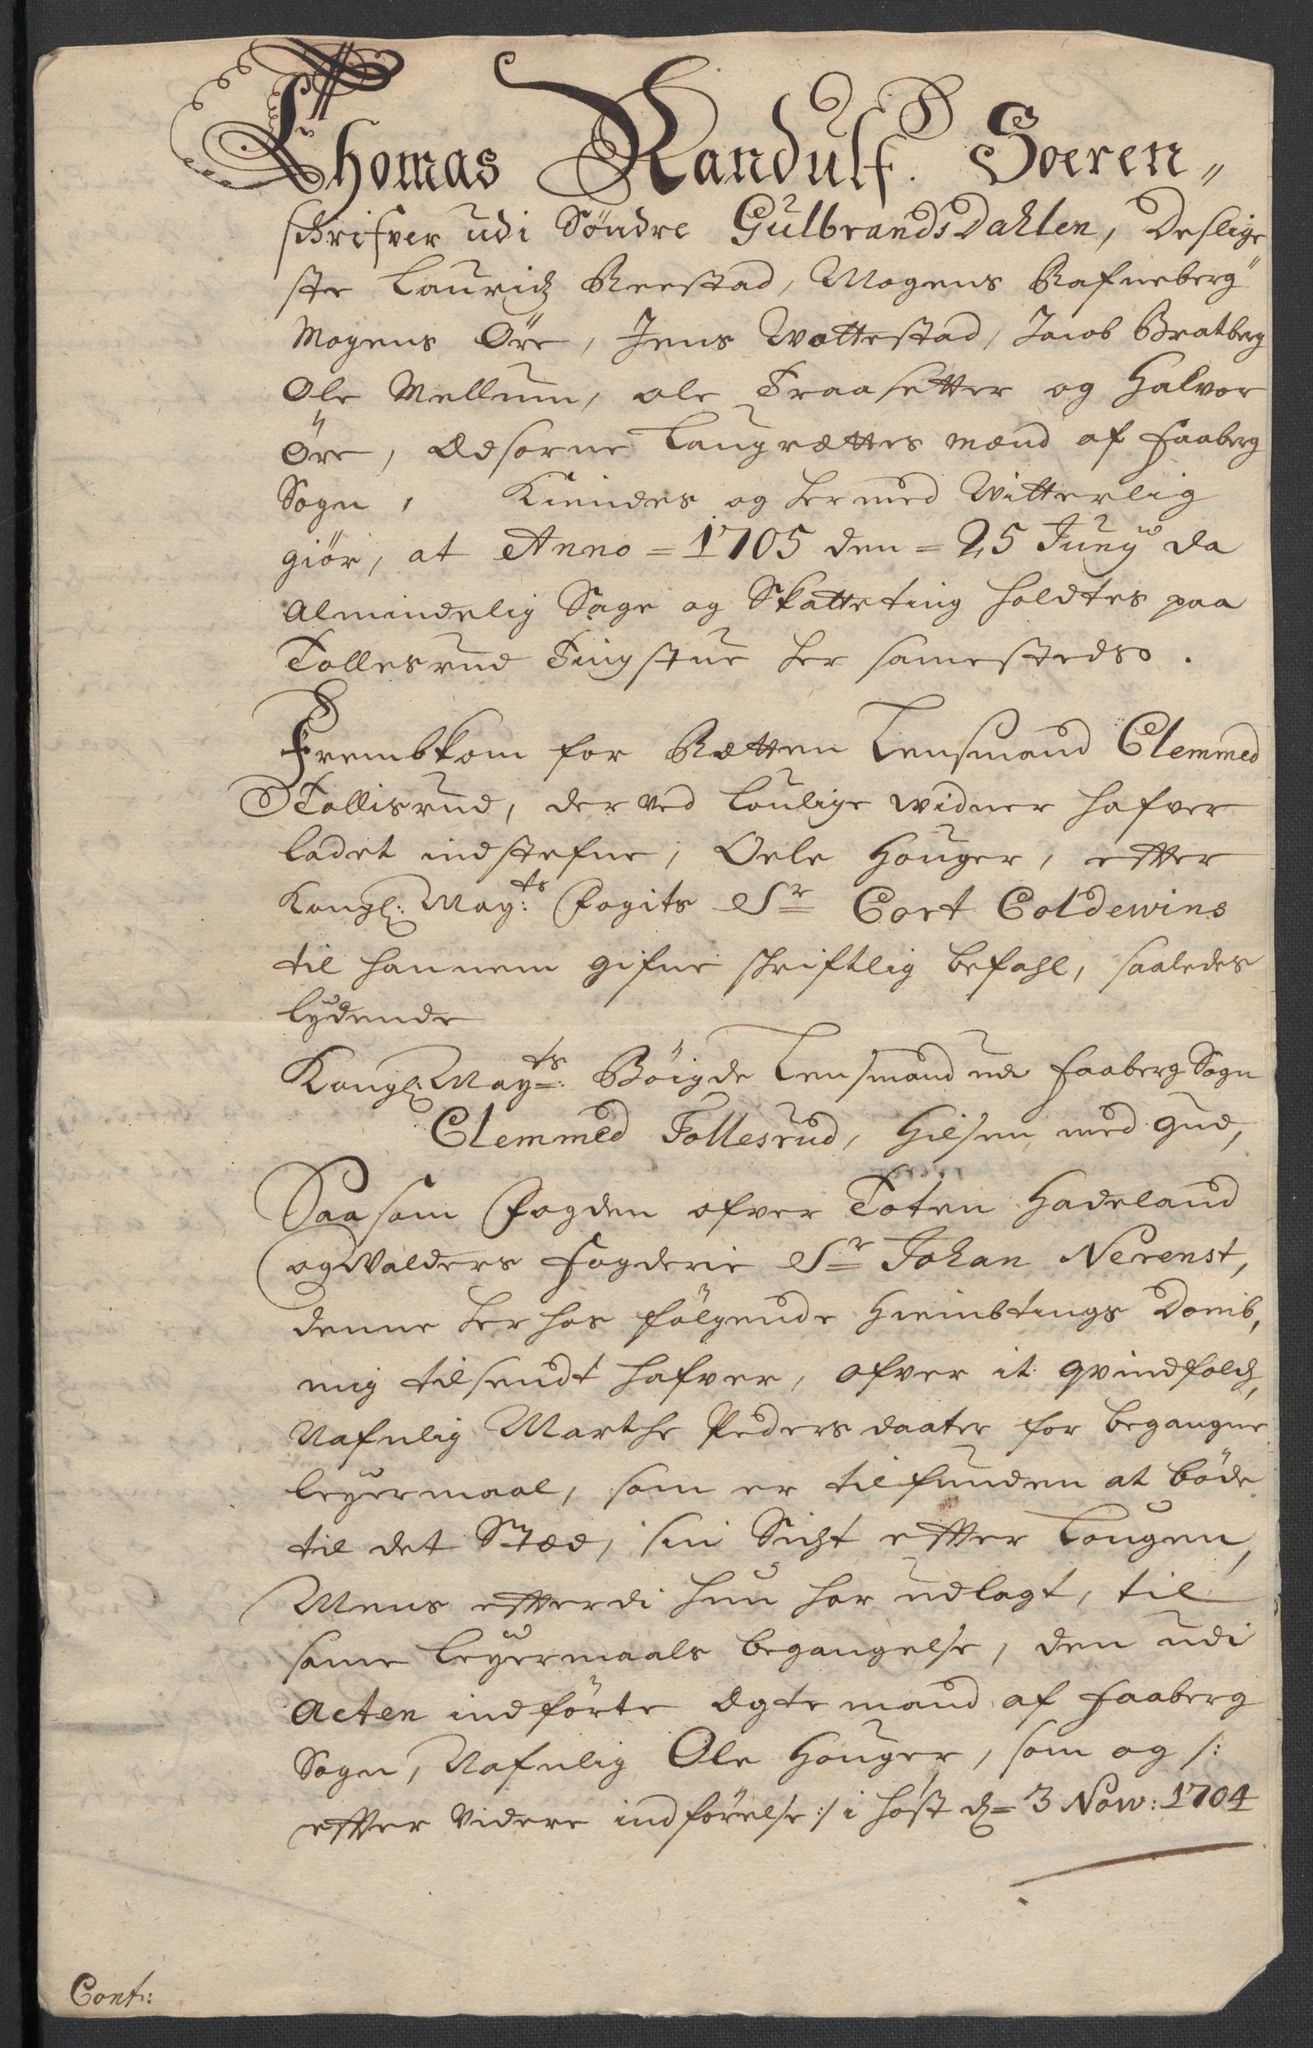 Thomas Randulf. Soeren„
schrifver udi Söndre GulbrandsDahlen, Deslige
ste Lauridz Reestad, Mogens Rafneberg
Mogens Öre, Jens Wottestad, Jacob Bratberg
Ole Mellum, ole Traasetter og Halvor
Öre, Edsorne Laugrættes mænd af Faaberg
Sogn, Kiendes og her med Witterlig
giör, at Anno = 1705 den = 25 Junÿ da
Almindelig Sage og Skatteting holdtes paa
Tollesrud Tingstue her samestedso.
Frembkom for Rætten Lensmand Clemmed
Tollisrud, der ved loulige widner hafver
ladet indstefne, Oele Houger, etter
Kongl: May:ts Fogits Sr Cort Coldewins
til hannem gifne schriftlig befahl, saaledes
lydende
Kongl: May:ts Böigde Lensmand udi Faaberg Sogn
Clemmed Tollesrud, Hilsen med Gud,
Saasom Fogden ofver Toten Hadeland
og Walders Fogderie Sr Johan Nerenst,
denne her hos fölgende Hiembtings Domb,
mig tilsendt hafver, ofver it qvindfolch,
Nafnlig Marthe Pedersdaater for begangne
leyermaal, som er tilfunden at böde
til det Stæd, sin Sicht etter Lougen,
Mens etterdi hun har udlagt, til
same leyermaals begangelse, den udi
Acten indförte Ægte mand af Faaberg
Sogn, Nafnlig Ole Houger, som og /:
etter videre indförelse :/ i höst d= 3 Now: 1704
Cont: